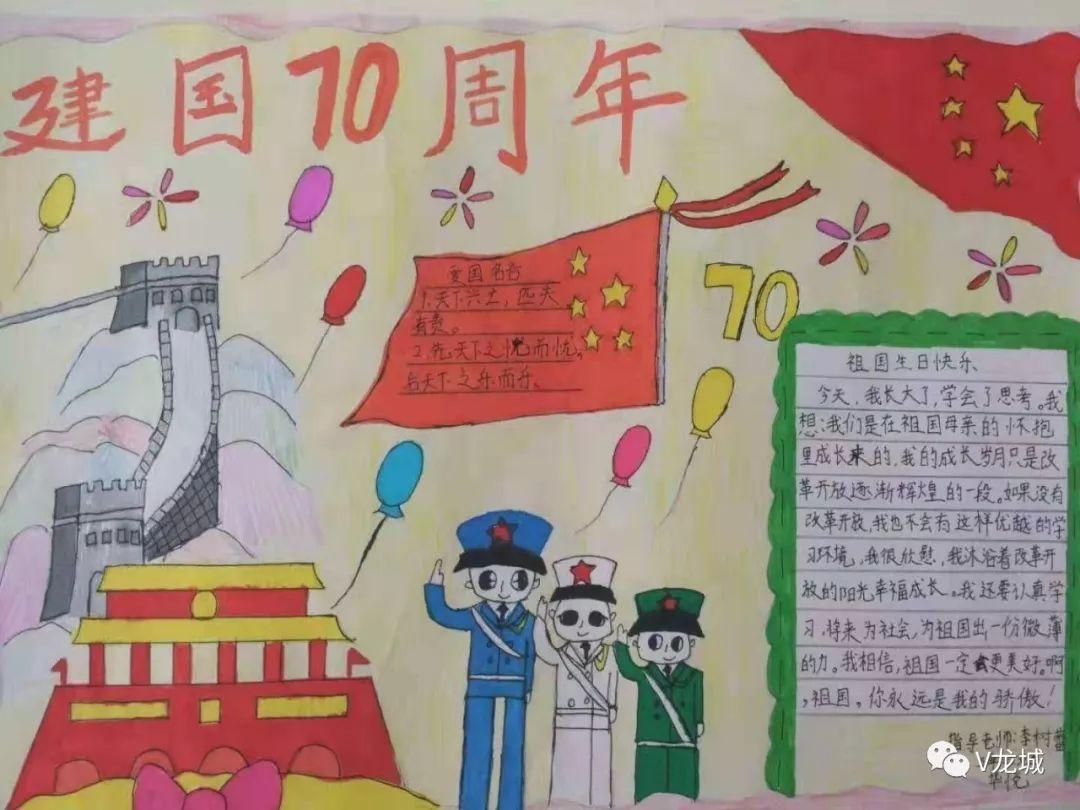 建国70周年
爱国名言
1.天下兴亡，匹夫
有责。
2.先天下之忧而忧。
后天下之乐而乐、
70
祖国生日快乐、
今天，我长大了，学会了思考。我
想：我们是在祖国母亲的怀抱
里成长来的，我的成长岁月只是改
革开放逐渐辉煌的一段。如果没有
改革开放，我也不会有这样优越的学
习环境，我很欣慰，我沐浴着改革开
放的阳光幸福成长。我还要认真学
习，将来为社会，为祖国出一份微薄
的力。我相信，祖国一定会更美好。啊
，祖国，你永远是我的骄傲！
指导老师：李树
V龙城